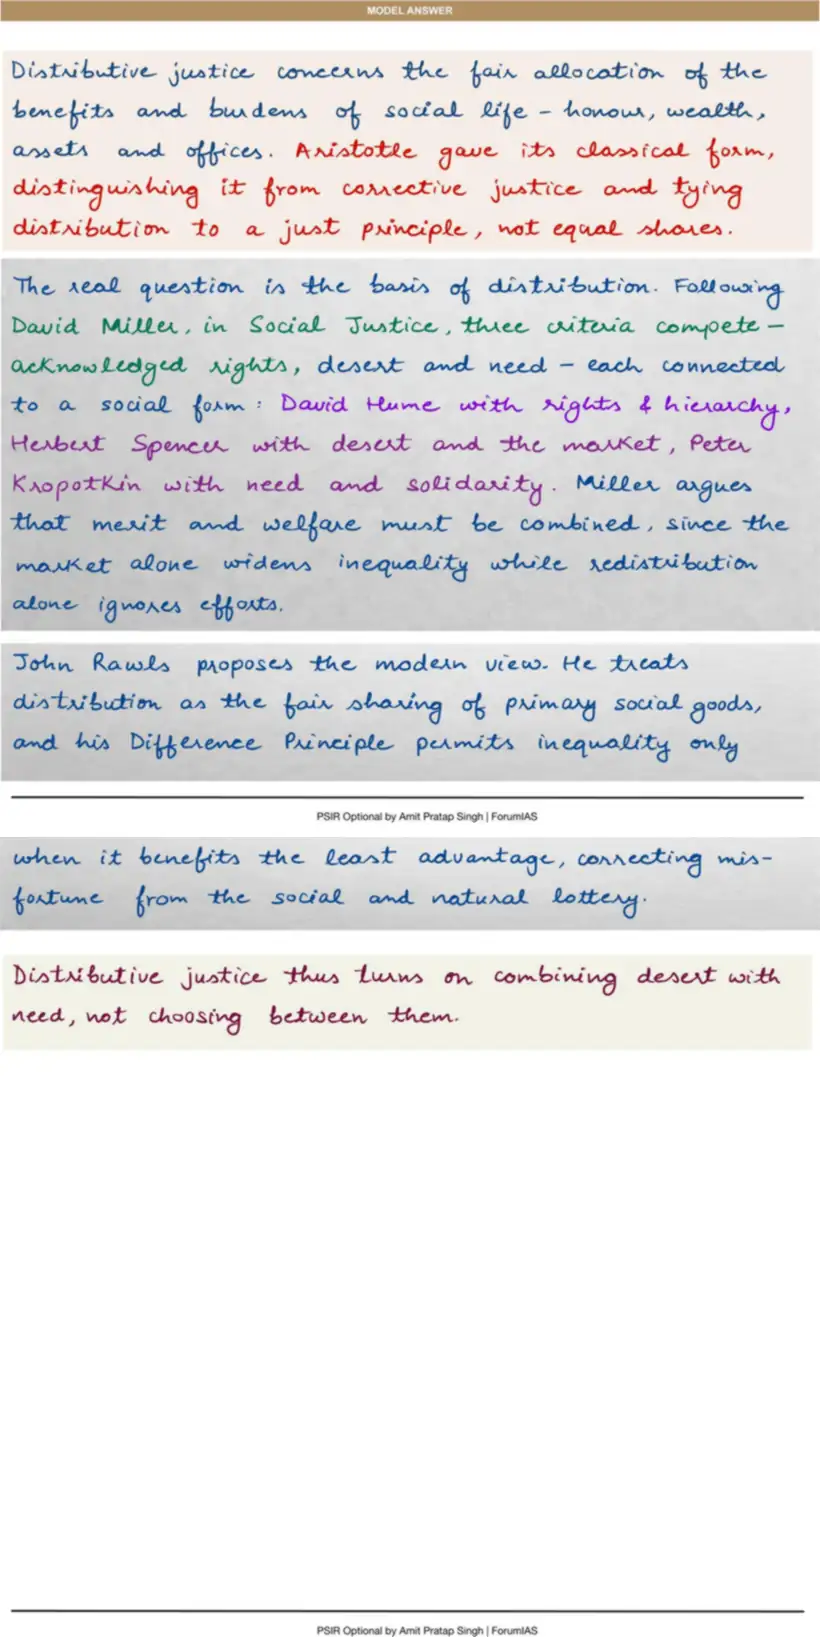 MODEL ANSWER
Distributive justice concerns the fair allocation of the
benefits and burdens of social life – honour, wealth,
assets and offices. Aristotle gave its classical form,
distinguishing it from corrective justice and tying
distribution to a just principle, not equal shares.
The real question is the basis of distribution. Following
David Miller, in Social Justice, three criteria compete –
acknowledged rights, desert and need – each connected
to a social form : David Hume with rights & hierarchy,
Herbert Spencer with desert and the market, Peter
Kropotkin with need and solidarity. Miller argues
that merit and welfare must be combined, since the
market alone widens inequality while redistribution
alone ignores efforts.
John Rawls proposes the modern view. He treats
distribution as the fair sharing of primary social goods,
and his Difference Principle permits inequality only
PSIR Optional by Amit Pratap Singh | ForumIAS
when it benefits the least advantage, correcting mis-
fortune from the social and natural lottery.
Distributive justice thus turns on combining desert with
need, not choosing between them.
PSIR Optional by Amit Pratap Singh | ForumIAS